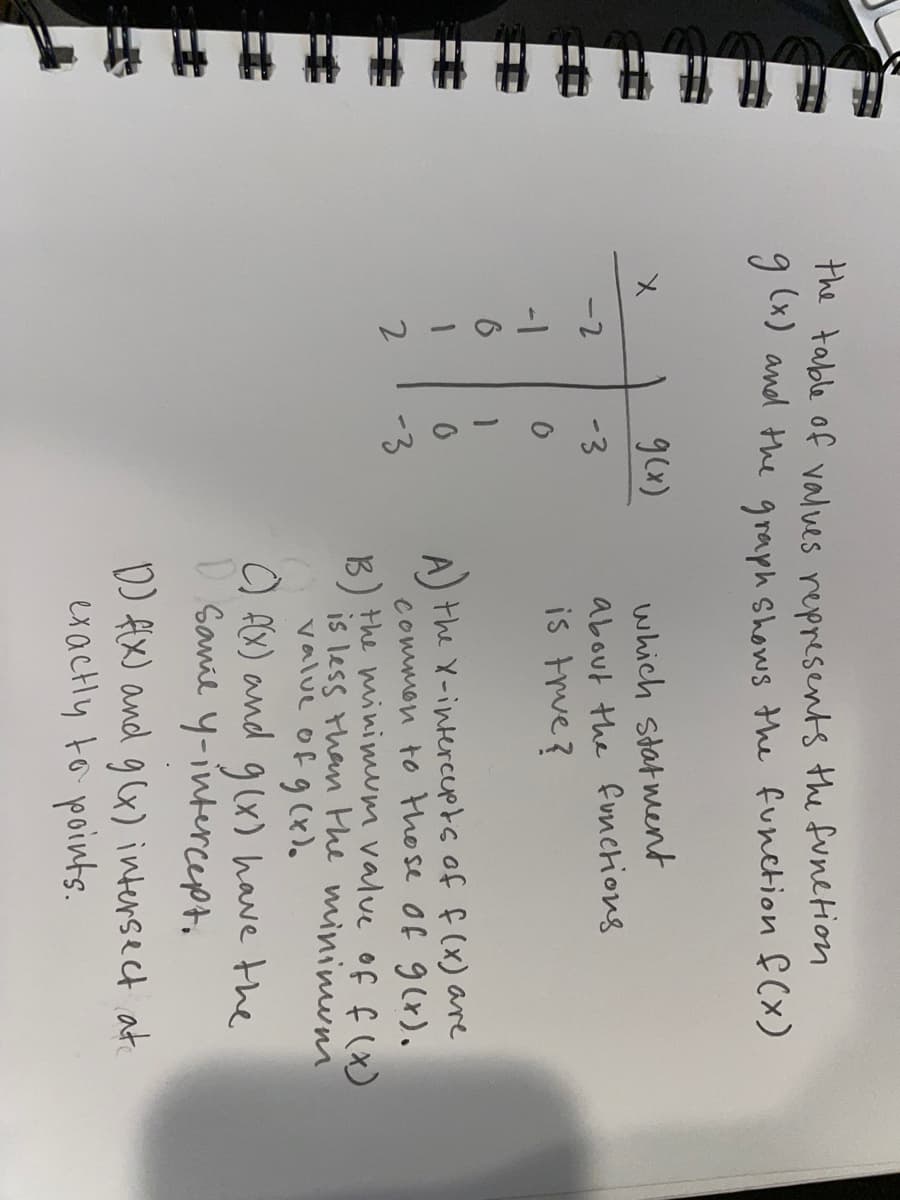 the table of values represents the function
g(x) and the graph shows the function f(x)
x | g(x)
-2 | -3
-1 | 0
0 | 1
1 | 0
2 | -3
which statment
about the functions
is true?
A) the x-intercepts of f(x) are
common to those of g(x).
B) the minimum value of f(x)
is less than the minimum
value of g(x).
C) f(x) and g(x) have the
same y-intercept.
D) f(x) and g(x) intersect at
exactly to points.